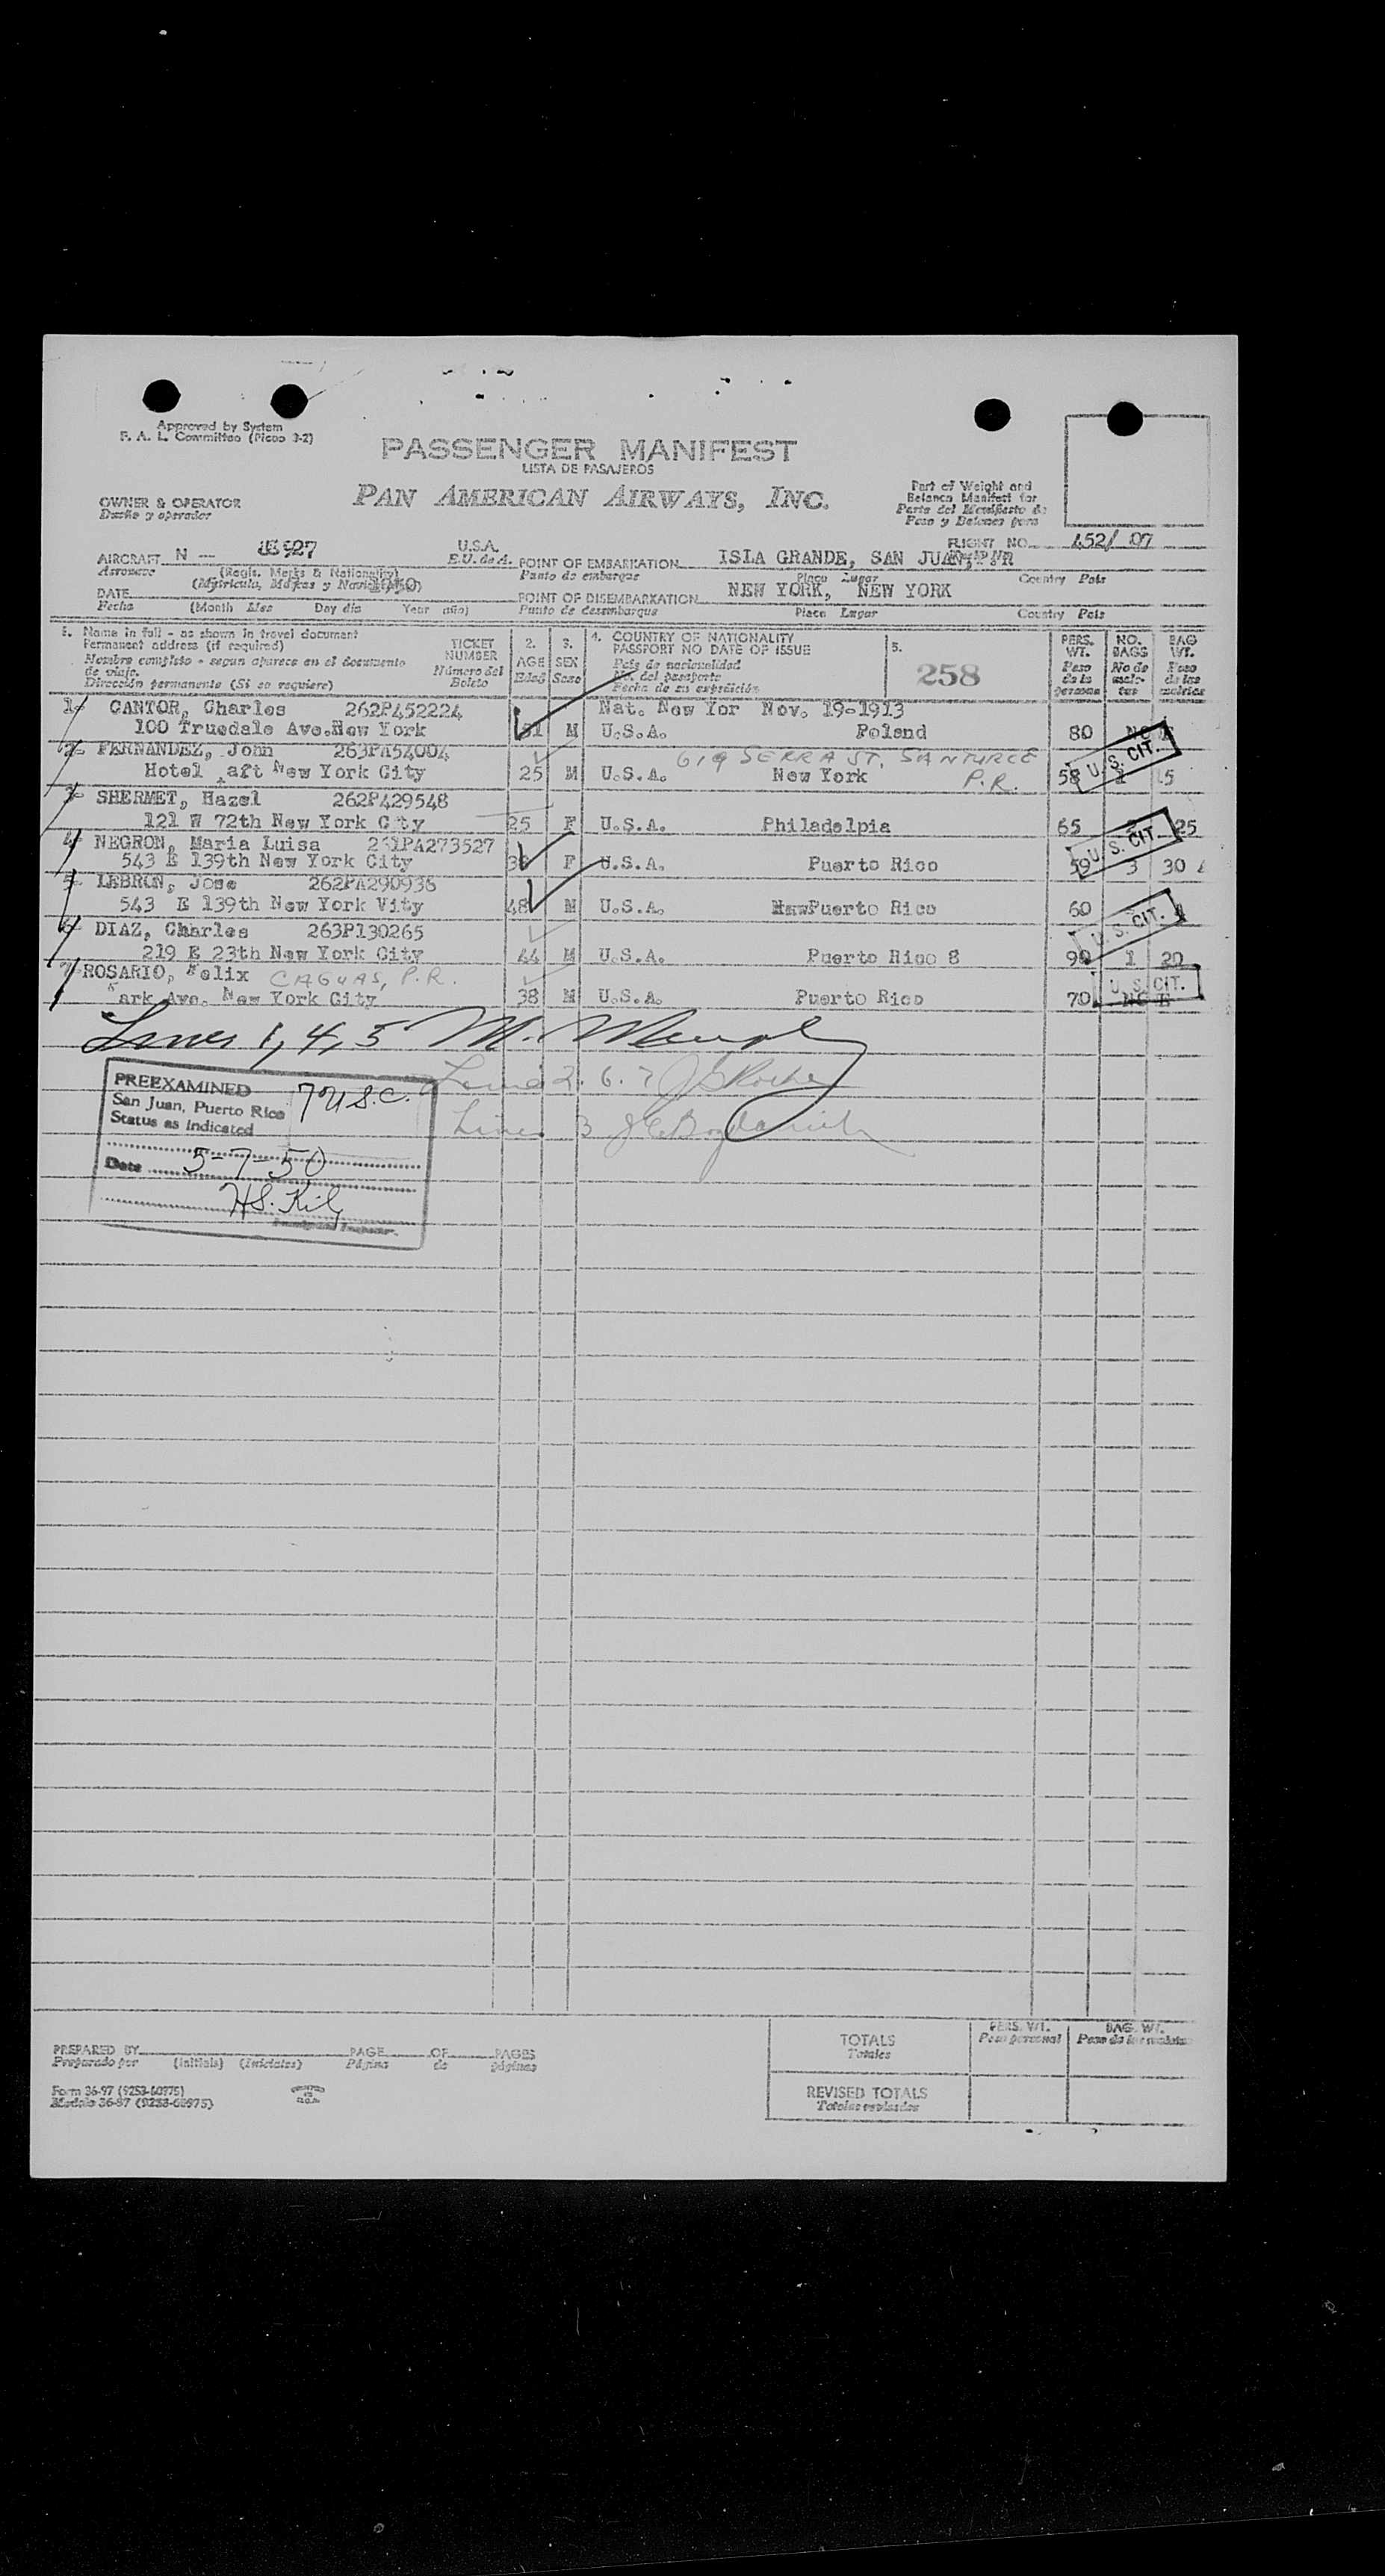 Approved by System
F. A. L. Committee (Picao 3-2)
PASSENGER MANIFEST
LISTA DE PASAJEROS
PAN AMERICAN AIRWAYS, INC.
OWNER & OPERATOR
Dueño y operador
Part of Weight and
Balance Manifest for
Parte del Manifiesto de
Peso y Balance para
FLIGHT NO. 452/ 07
AIRCRAFT N --
Aeronave
(Regis. Marks & Nationality)
(Matricula, Marcas y Nacionalidad)
U.S.A.
E.U. de A.
POINT OF EMBARKATION ISLA GRANDE, SAN JUAN,
Punto de embarque
Place Lugar
Country Pais
DATE 1950
Fecha
(Month Mes Day dia Year año)
POINT OF DISEMBARKATION NEW YORK, NEW YORK
Punto de desembarque
Place Lugar
Country Pais
1. Name in full - as shown in travel document
Permanent address (if required)
Nombre completo - segun aparece en el documento
de viaje.
Dirección permanente (Si se requiere)
TICKET
NUMBER
Número del
Boleto
2.
AGE
Edad
3.
SEX
Sexo
4. COUNTRY OF NATIONALITY
PASSPORT NO DATE OF ISSUE
Pais de nacionalidad
No. del pasaporte
Fecha de su expedición
5.
258
PERS.
WT.
Peso
de la
persona
NO.
BAGS
No de
male-
tas
BAG
WT.
Peso
de las
maletas
1- CANTOR, Charles 262P452224 Nat. New Yor Nov. 19-1913
100 Truedale Ave.New York 51 M U.S.A. Poland 80
2- FERNANDEZ, John 263PA54004 619 SERRA ST, SANTURCE
Hotel aft New York City 25 M U.S.A. New York P.R. 58 1 15
U. S. CIT.
3- SHERMET, Hazel 262P429548
121 W 72th New York C ty 25 F U.S.A. Philadelpia 65 25
4- NEGRON, Maria Luisa 261PA273527
543 E 139th New York City F U.S.A. Puerto Rico 59 3 30
U. S. CIT.
5- LEBRON, Jose 262PA290936
543 E 139th New York Vity 48 M U.S.A. Puerto Rico 60
6- DIAZ, Charles 263P130265
219 E 23th New York City 44 M U.S.A. Puerto Rico 8 90 1 20
U. S. CIT.
7 ROSARIO, Felix CAGUAS, P.R.
Park Ave. New York City 38 M U.S.A. Puerto Rico 70
U. S. CIT.
Lines 1, 4, 5 M.
Lines 2. 6. 7
Lines 3
PREEXAMINED 7 U.S.C.
San Juan, Puerto Rico
Status as Indicated
Date 5-7-50
PREPARED BY
Preparado por (Initials) (Iniciales)
PAGE OF PAGES
Página de páginas
TOTALS
Totales
PERS. WT.
Peso personal
BAG. WT.
Peso de las maletas
REVISED TOTALS
Totales revisados
Form 36-97 (9253-60975)
Modelo 36-97 (9253-60975)